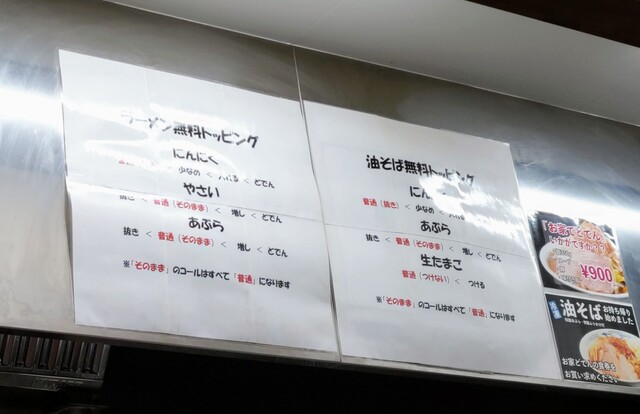 ラーメン無料トッピング
にんにく
少なめ < 入れる < どでん
やさい
抜き < 普通（そのまま） < 増し < どでん
あぶら
抜き < 普通（そのまま） < 増し < どでん
※「そのまま」のコールはすべて「普通」になります
油そば無料トッピング
にんにく
普通（抜き） < 少なめ < 入れる
あぶら
抜き < 普通（そのまま） < 増し < どでん
生たまご
普通（つけない） < つける
※「そのまま」のコールはすべて「普通」になります
「お家でどでん」
いかがですか？
¥900
油そば お持ち帰り
始めました
お家どでんの食券を
お買い求めください